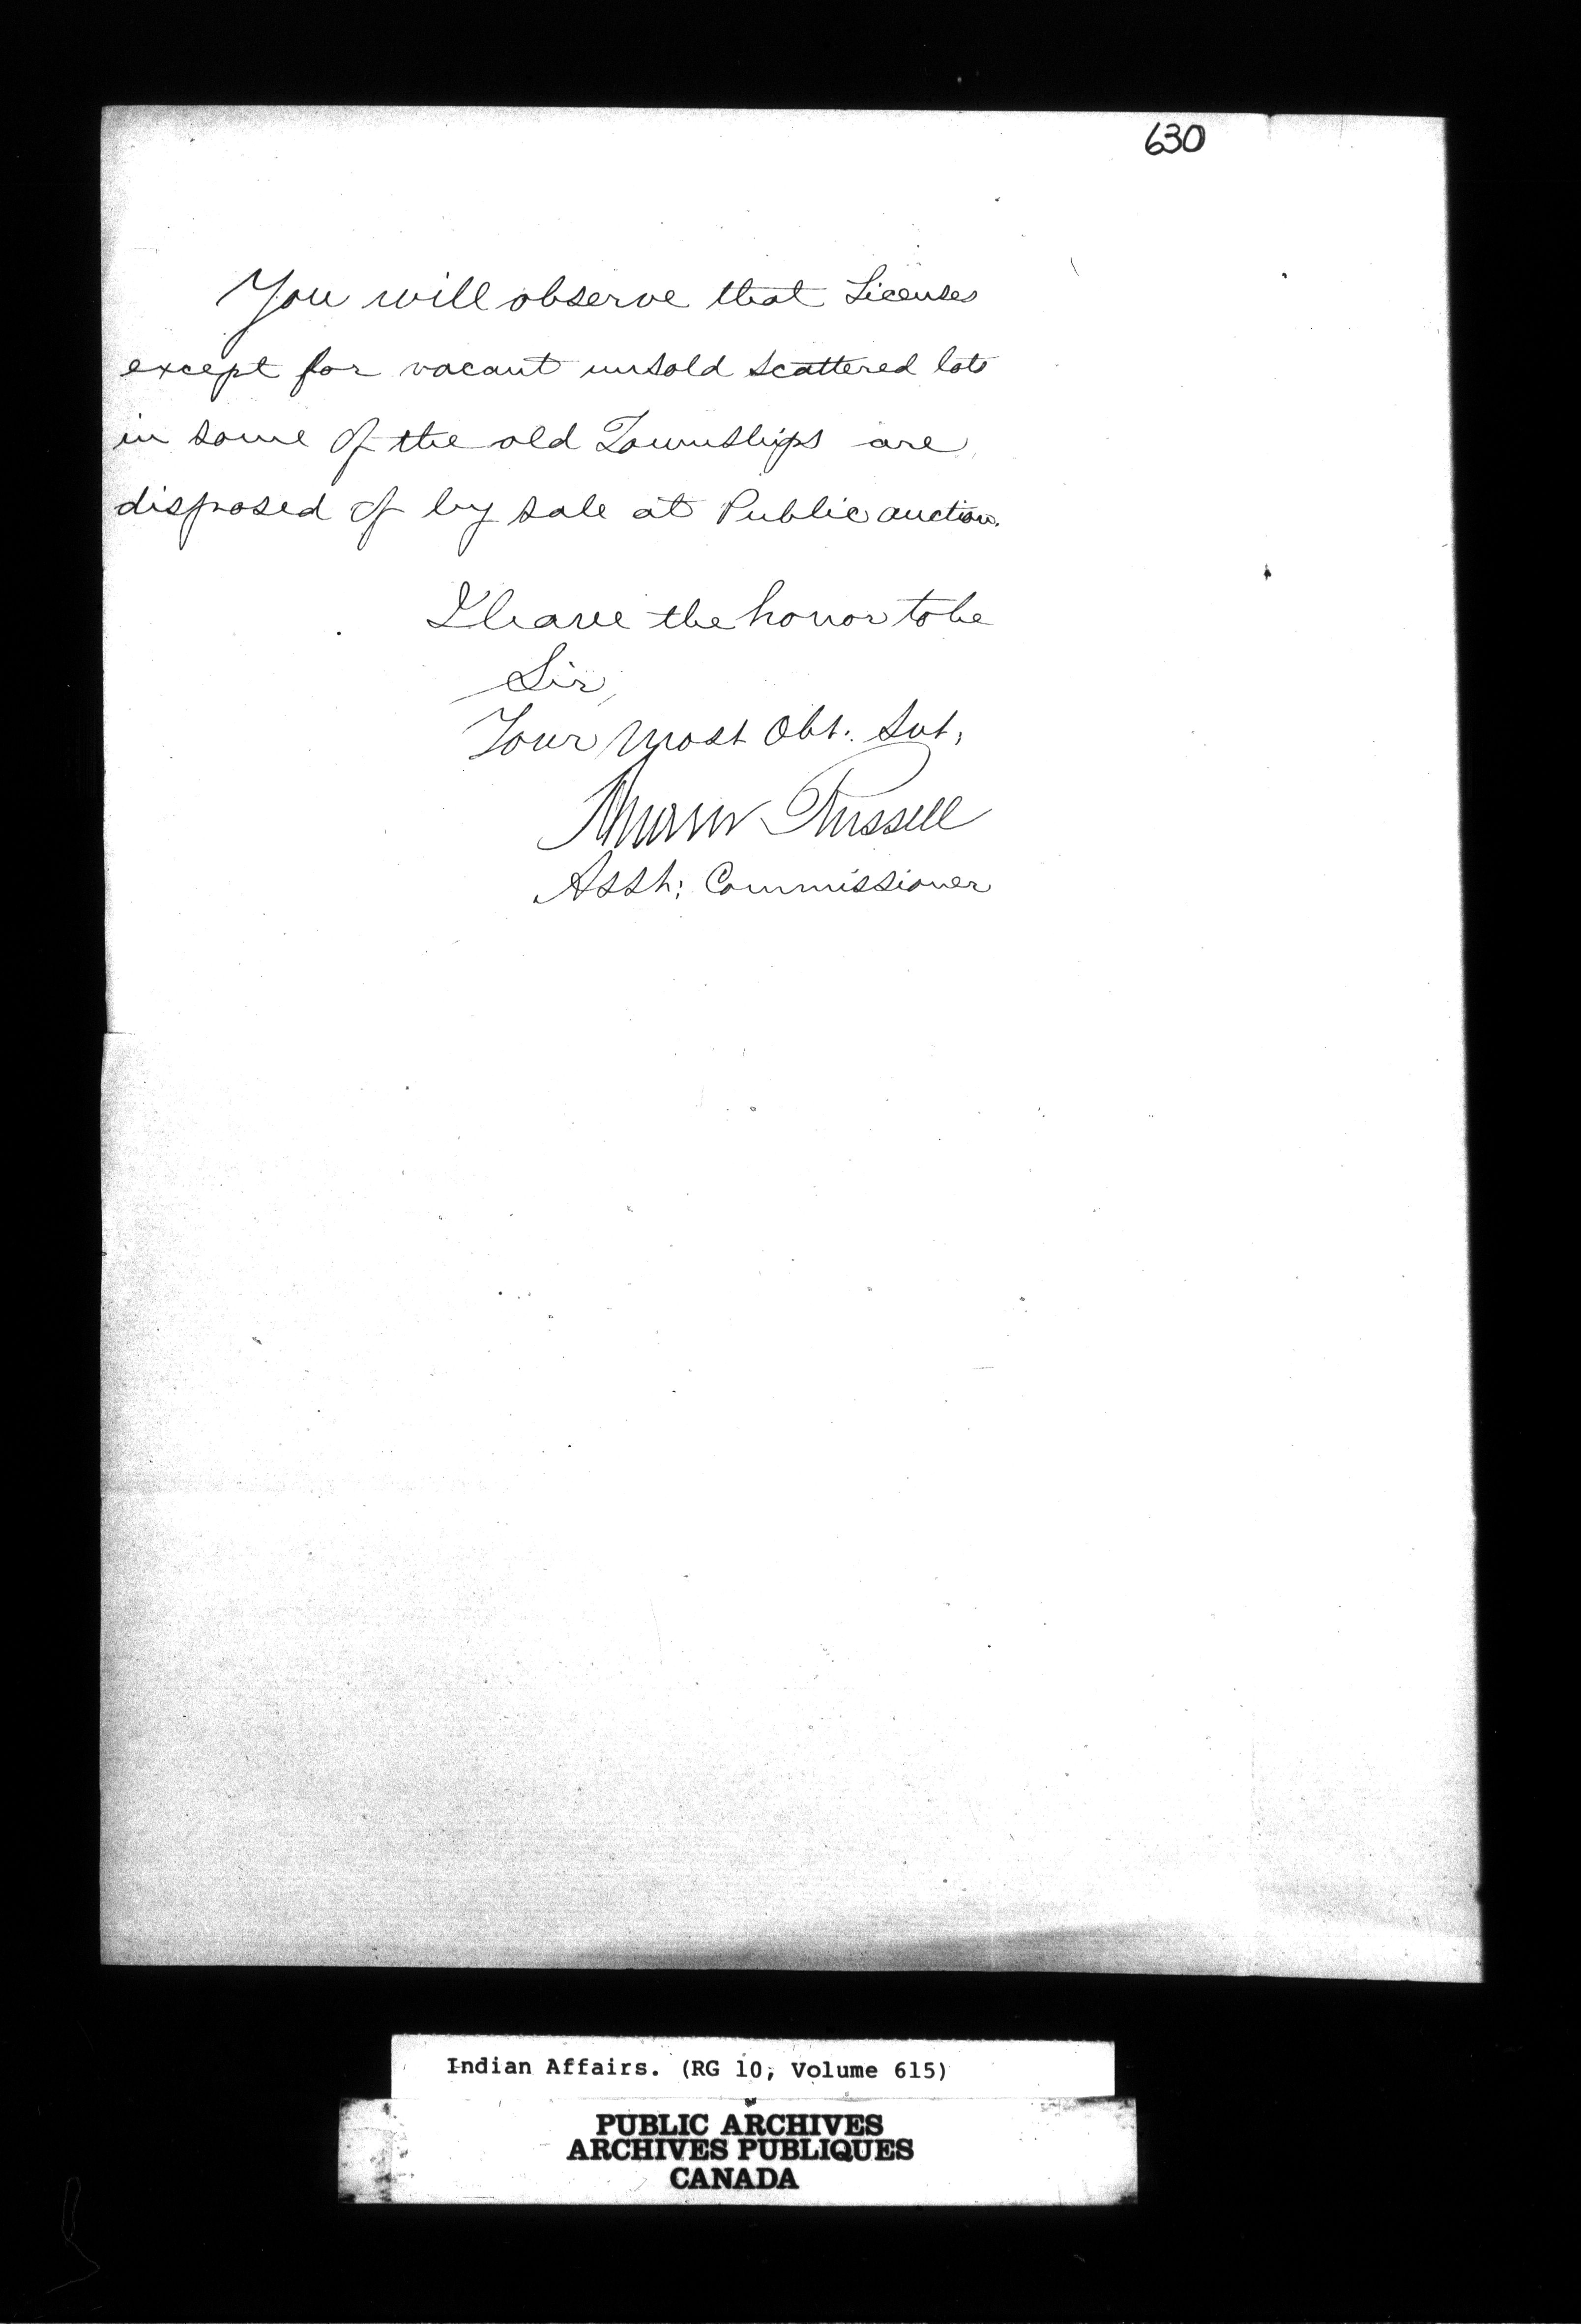 630
You will observe that Licenses
except for vacant unsold scattered lots
in some of the old Townships are
disposed of by sale at Public auction.
I have the honor to be
Sir,
Your most Obt. Svt,
Andrew Russell
Asst: Commissioner
Indian Affairs. (RG 10, Volume 615)
PUBLIC ARCHIVES
ARCHIVES PUBLIQUES
CANADA